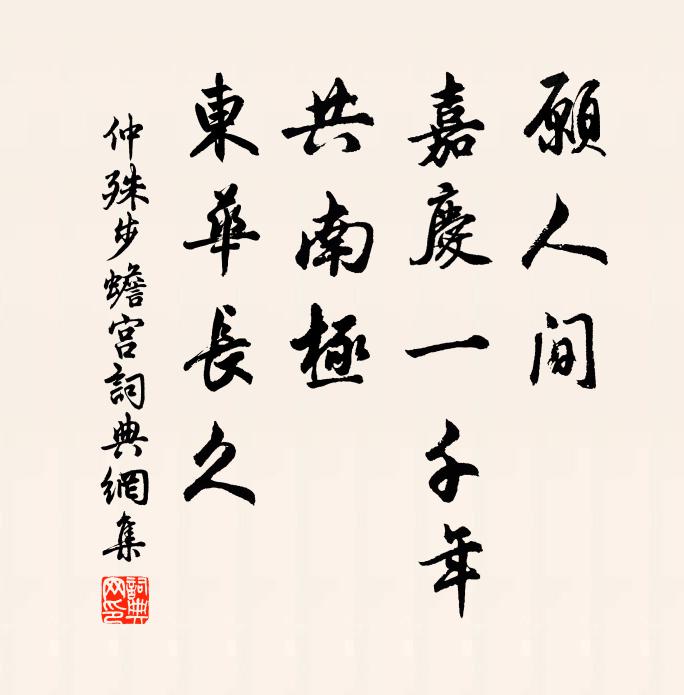 願人間
嘉慶一千年
共南極
東華長久
仲殊步蟾宮詞典網集
詞典網印